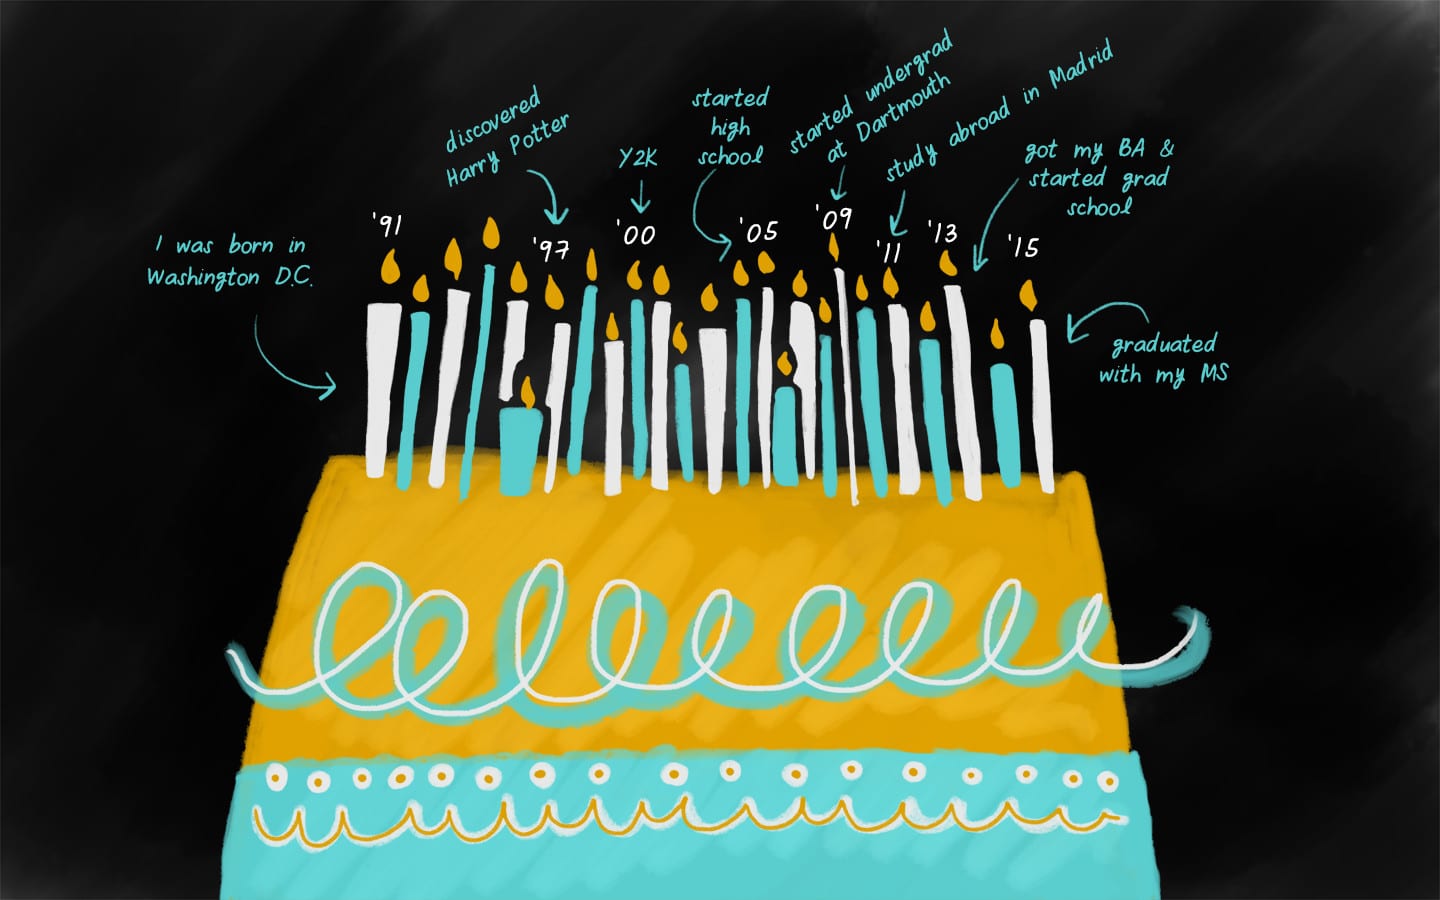 I was born in
Washington D.C.
'91
discovered
Harry Potter
'97
Y2K
'00
started
high
school
'05
started undergrad
at Dartmouth
'09
study abroad in Madrid
'11
got my BA &
started grad
school
'13
'15
graduated
with my MS